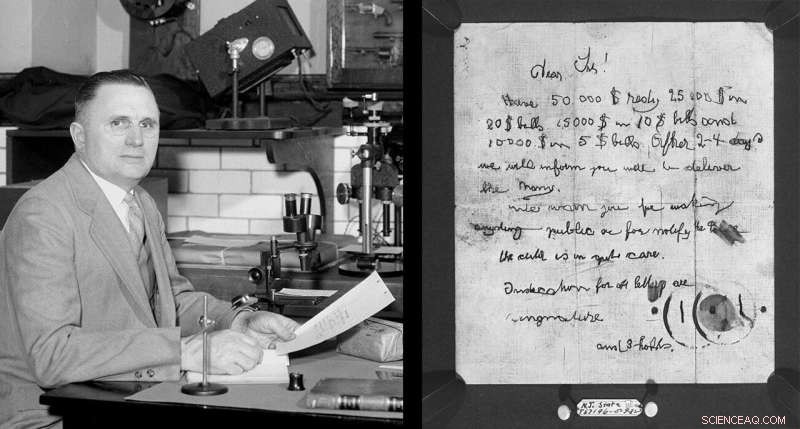 Dear Sir!
Have 50.000 $ redy 25 000 $ in
20 $ bills 15000 $ in 10 $ bills and
10000 $ in 5 $ bills After 2-4 days
we will inform you were to deliver
the Mony.
We warn you for making
anyding public or for notify the
the child is in gut care.
Indication for all letters are
singnature
and 3 holds.
N.J. State
SCIENCEAQ.COM